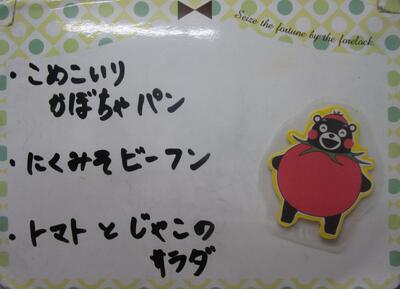 Seize the fortune by the forelock.
・こめこいり
かぼちゃパン
・にくみそビーフン
・トマトとじゃこの
サラダ